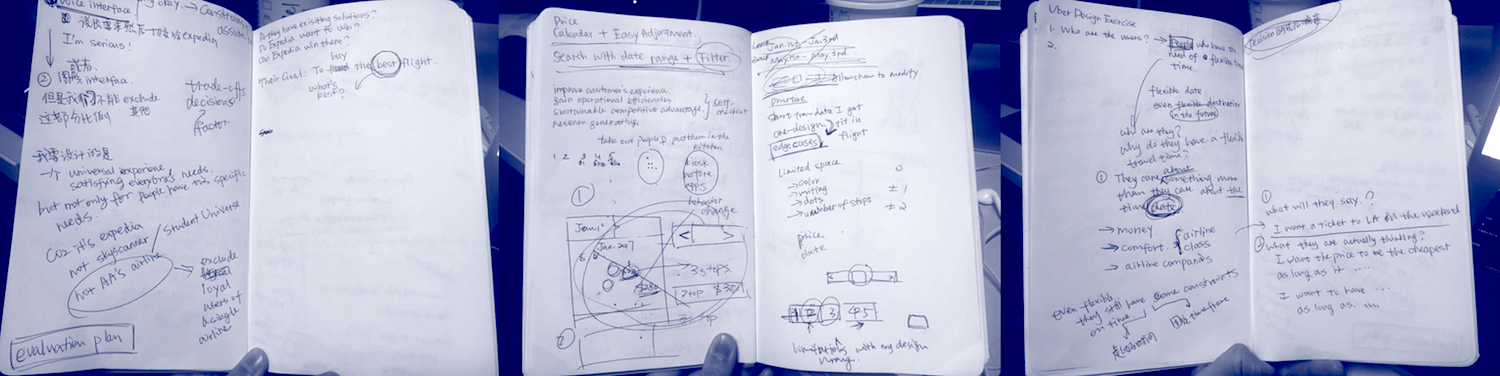 voice interface
okay. → constraints
I'm serious!
或者
② 图形 interface.
但是我们不能 exclude
其他
trade-offs
decisions
factor
我需设计的是
一个 universal experience
satisfying everyone's needs.
but not only for people have this specific
needs.
CO2 it's expedia
not skyscanner
Student Universe
not AA's airline
exclude
loyal
users of
a single
airline
evaluation plan
Do they have existing solutions?
Do Expedia want to win?
Can Expedia win them?
buy
Their Goal: To the best flight.
what's
best?
Price
Calendar + Easy Adjustment
Search with date range + Filter.
improve customer's experience.
gain operational efficiencies
sustainable competitive advantage.
revenue generating.
self-
checkout
take out people & put them in the
kitchen
1 2 3 4 5
kiosk
before
apps
behavior
change
①
Jan. 1
Jan. 2017
< >
3 stops.
2 stop $350
②
Jan. 1st - Jan. 3rd
May 1st - May. 3rd
allow them to modify
short-term data I got
one-design fit in
flight
edge cases
limited space
→ color
→ writing
→ dots
→ number of stops
0
± 1
± 2
price
date
1 2 3 4 5
limitations with my design
wrong.
Uber Design Exercise
1. Who are the users? → People who have the
need of a flexible
time.
2.
flexible date
even flexible destination
in the future
who are they?
why do they have a flexible
travel time?
① They care about something more
than they care about the
time date
→ money.
→ comfort.
→ airline companies
airline
class
even flexible
they still have some constraints
on time.
timeframe
①
what will they say.?
I want a ticket to LA in the weekend
② What they are actually thinking?
I want the price to be the cheapest
as long as it ....
I want to have ...
as long as. ...